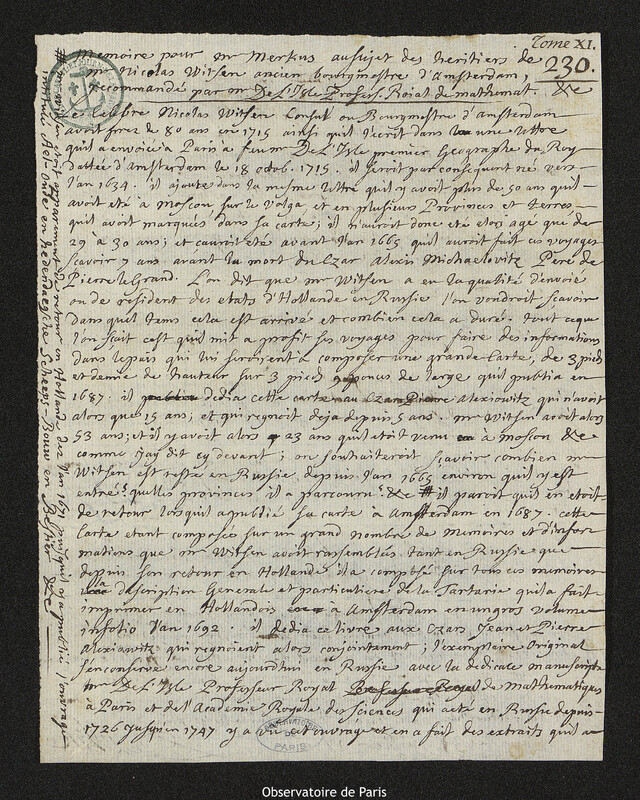 Tome XI.
230.
Memoire pour mr Merkus au sujet des heritiers de
mr Nicolas Witsen ancien bourgmestre d'Amsterdam,
recommandé par mr De L'Isle Profess. Roial de mathemat. &c
Le celebre Nicolas Witsen Consul ou Bourgmestre d'Amsterdam
avoit pres de 80 ans en 1715 ainsi qu'il l'ecrit dans une Lettre
qu'il a envoiée à Paris a feu mr De L'Isle premier Geographe du Roy
dattée d'Amsterdam le 18 octob. 1715. il seroit par consequent né vers
l'an 1634. il ajoute dans la mesme lettre qu'il y avoit plus de 50 ans qu'il
avoit eté a Moscou sur le Volga et en plusieurs Provinces et terres
qu'il avoit marquées dans sa carte; il n'auroit donc eté alors agé que de
29 à 30 ans; et c'auroit eté avant l'an 1665 qu'il auroit fait ces voyages
scavoir 7 ans avant la mort du Czar Alexis Michaelowitz Pere de
Pierre le Grand. L'on dit que mr Witsen a eu la qualité d'envoié
ou de résident des etats d'Hollande en Russie l'on voudroit scavoir
dans quel tems cela est arrivé et combien cela a duré. tout ce que
l'on scait c'est qu'il mit a profit ses voyages pour faire des informations
dans le pais qui lui serviront à composer une grande Carte, de 3 pieds
et demie de hauteur sur 3 pieds 9 pouces de large qu'il publia en
1687. il dedia cette carte au Czar Pierre Alexiowitz qui n'avoit
alors que 15 ans; et qui regnoit deja depuis 5 ans. mr Witsen avoit alors
53 ans; et il y avoit alors 23 ans qu'il etoit venu à Moscou &c
comme j'ay dit cy devant; on souhaiteroit scavoir combien mr
Witsen est resté en Russie depuis l'an 1665 environ qu'il y est
entré? quelles provinces il a parcouru? &c # il paroit qu'il en etoit
de retour lorsqu'il a publié sa carte à Amsterdam en 1687. cette
Carte etant composée sur un grand nombre de Memoires et d'infor-
mations que mr Witsen avoit rassemblés tant en Russie que
depuis son retour en Hollande il a composé sur tous ces memoires
la description Generale et particuliere de la Tartarie qu'il a fait
imprimer en Hollandois à Amsterdam en un gros volume
in folio l'an 1692. il dedia ce livre aux Czars Jean et Pierre
Alexiowitz qui regnoient alors conjointement; l'exemplaire Original
s'en conserve encore aujourd'hui en Russie avec la dedicace manuscripte
mr De L'Isle Professeur Royal de mathematiques
à Paris et de l'Academie Royale des Sciences qui a eté en Russie depuis
1726 jusqu'en 1747 y a vu cet ouvrage et en a fait des extraits qu'il a
# mr Witsen etoit apparemment de retour en Hollande des l'an 1671 puisqu'il y a publié l'ouvrage
intitulé Aeloude en hedendaegsche Scheeps-Bouw en Bestier &c
OBSERVATOIRE
DE
PARIS
Observatoire de Paris